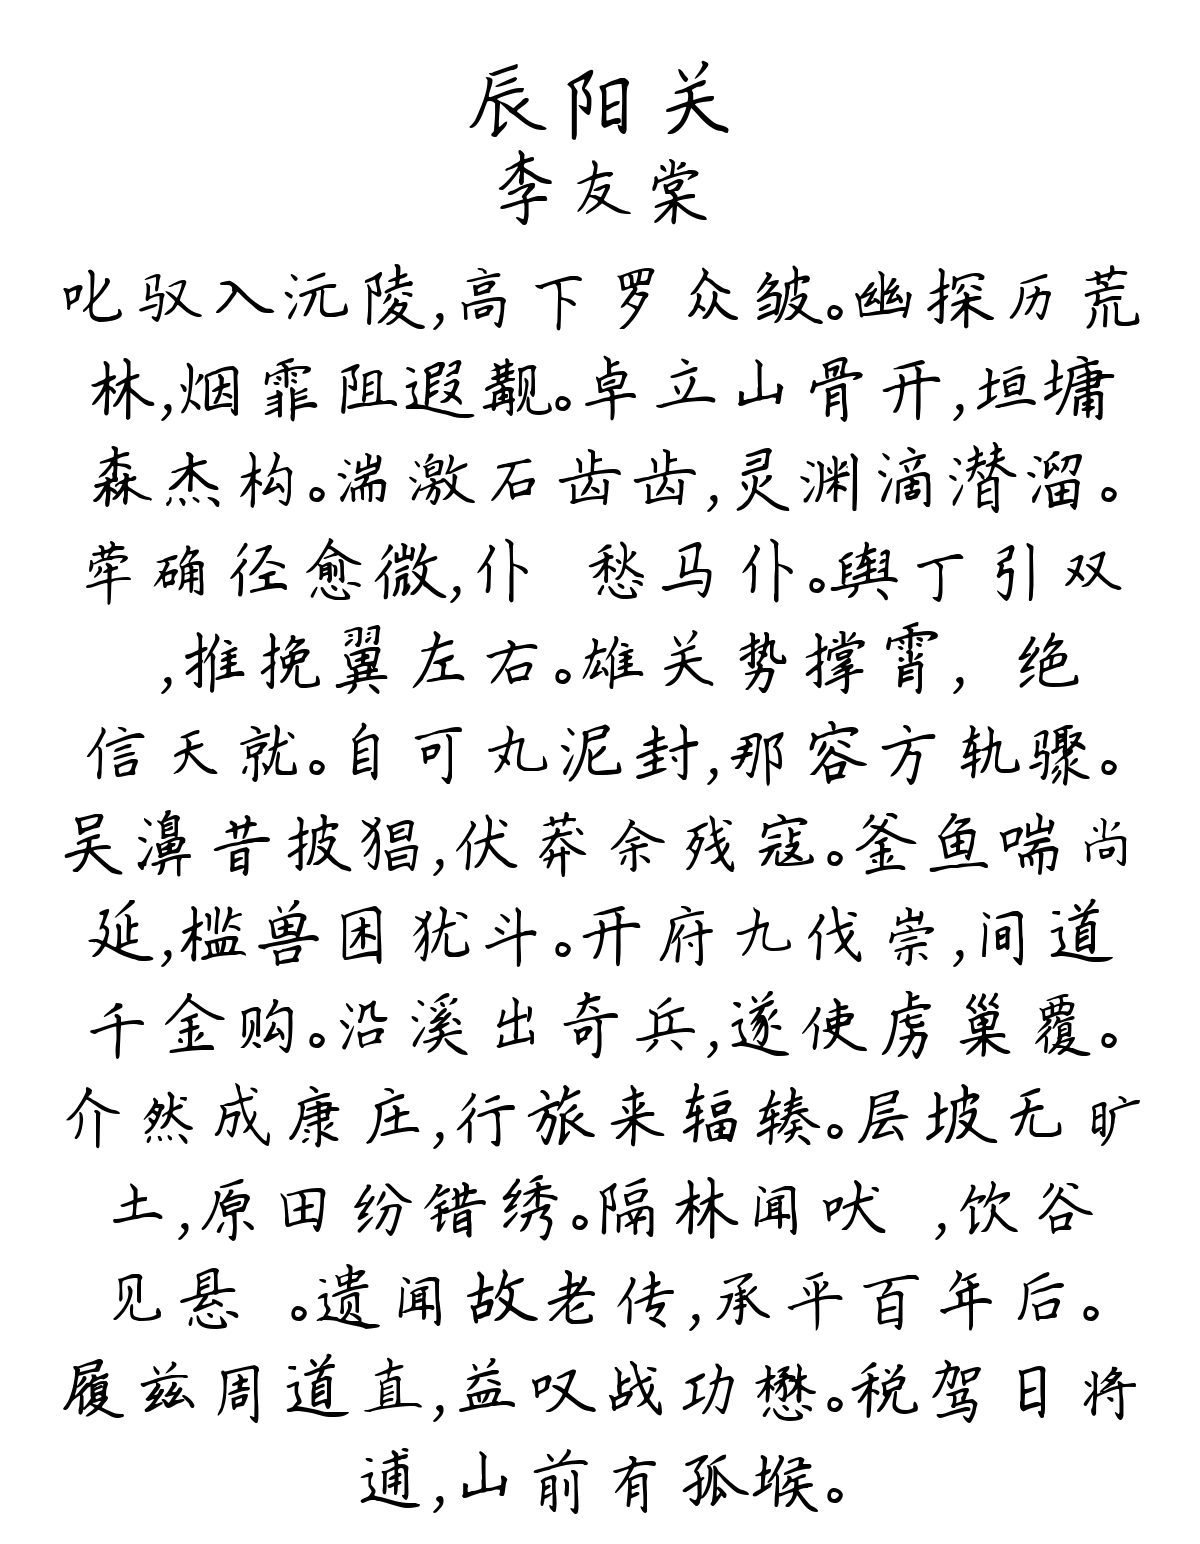 辰阳关
李友棠
叱驭入沅陵,高下罗众皱。幽探历荒
林,烟霏阻遐觏。卓立山骨开,垣墉
森杰构。湍激石齿齿,灵渊滴潜溜。
荦确径愈微,仆 愁马仆。舆丁引双
,推挽翼左右。雄关势撑霄, 绝
信天就。自可丸泥封,那容方轨骤。
吴濞昔披猖,伏莽余残寇。釜鱼喘尚
延,槛兽困犹斗。开府九伐崇,间道
千金购。沿溪出奇兵,遂使虏巢覆。
介然成康庄,行旅来辐辏。层坡无旷
土,原田纷错绣。隔林闻吠 ,饮谷
见悬 。遗闻故老传,承平百年后。
履兹周道直,益叹战功懋。税驾日将
逋,山前有孤堠。